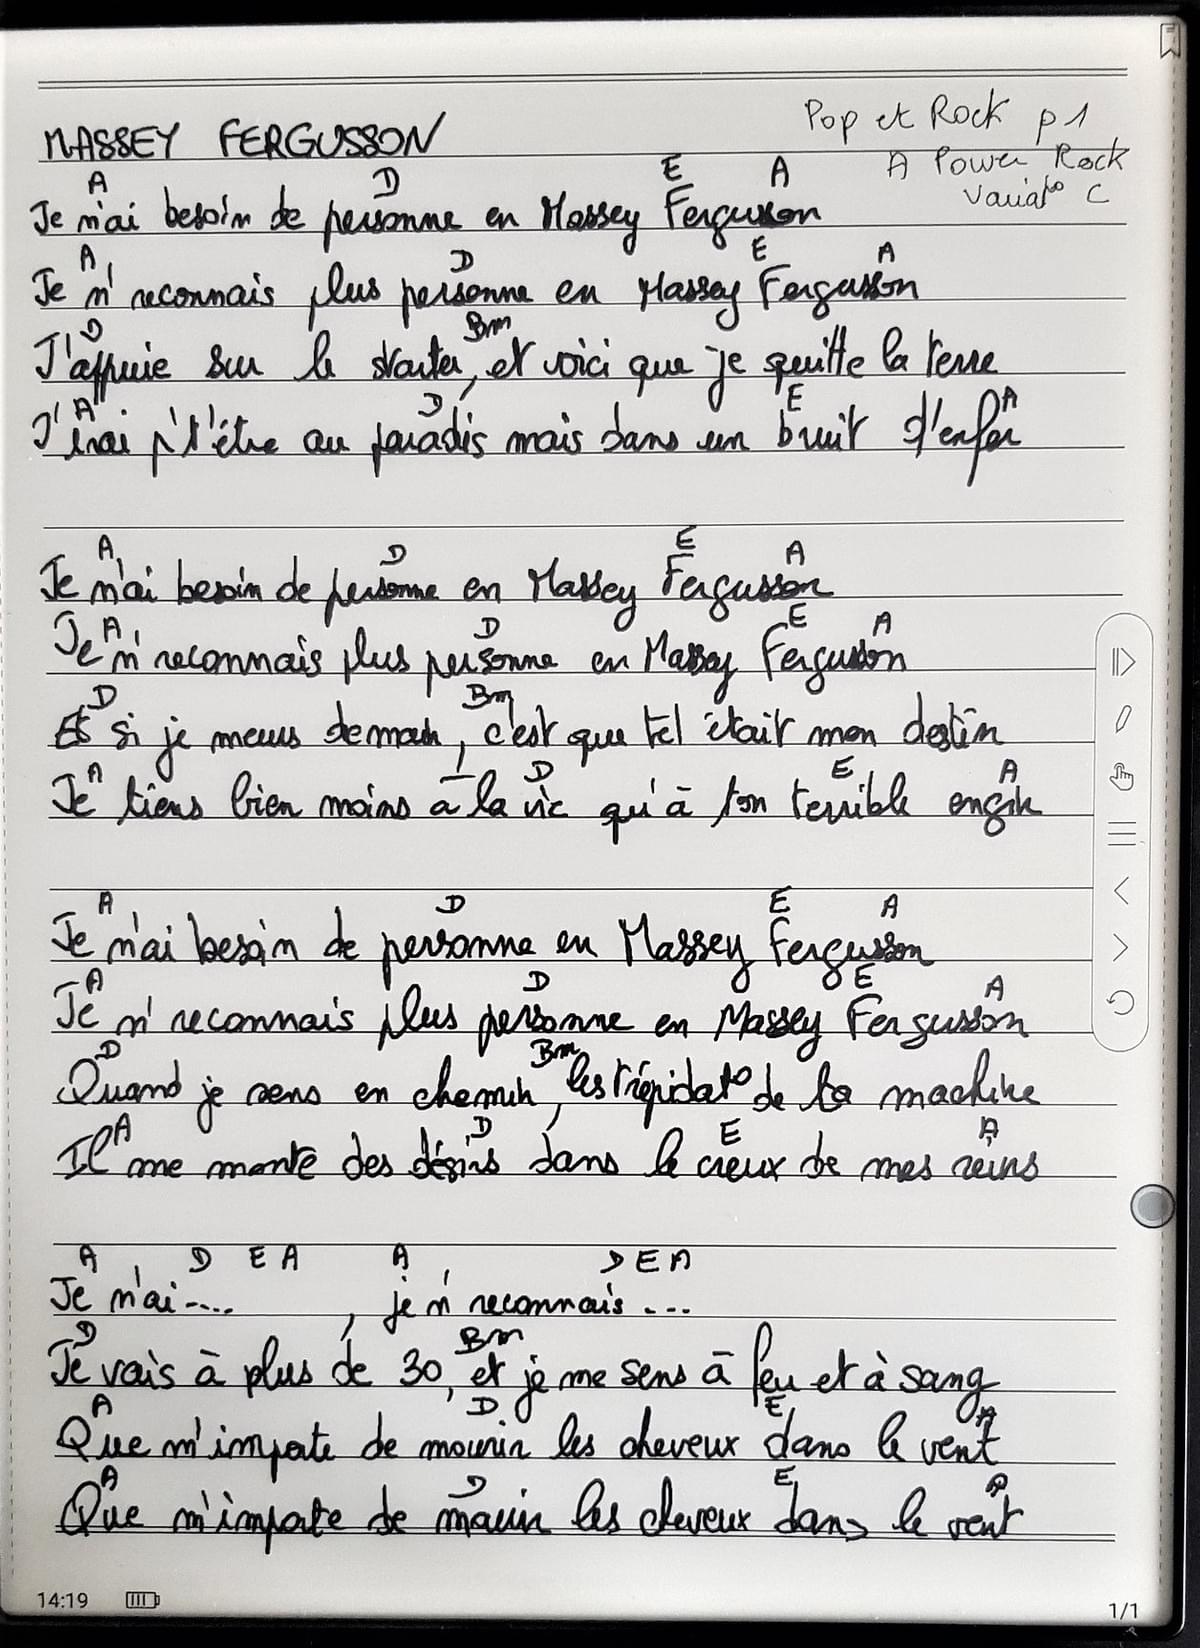 Pop et Rock p1
MASSEY FERGUSSON
A Power Rock
Variat° C
A D E A
Je n'ai besoin de personne en Massey Fergusson
A D E A
Je n' reconnais plus personne en Massey Fergusson
D Bm
J'appuie sur le starter, et voici que je quitte la terre
A D E A
J'irai p't'être au paradis mais dans un bruit d'enfer
A D E A
Je n'ai besoin de personne en Massey Fergusson
A D E A
Je n' reconnais plus personne en Massey Fergusson
D Bm
Et si je meurs demain, c'est que tel était mon destin
A D E A
Je tiens bien moins à la vie qu'à ton terrible engin
A D E A
Je n'ai besoin de personne en Massey Fergusson
A D E A
Je n' reconnais plus personne en Massey Fergusson
D Bm
Quand je sens en chemin, les trépidat° de la machine
A D E A
Il me monte des désirs dans le creux de mes reins
A D E A A D E A
Je n'ai...., je n' reconnais ...
D Bm
Je vais à plus de 30, et je me sens à feu et à sang
A D E A
Que m'importe de mourir les cheveux dans le vent
A D E A
Que m'importe de mourir les cheveux dans le vent
14:19
1/1